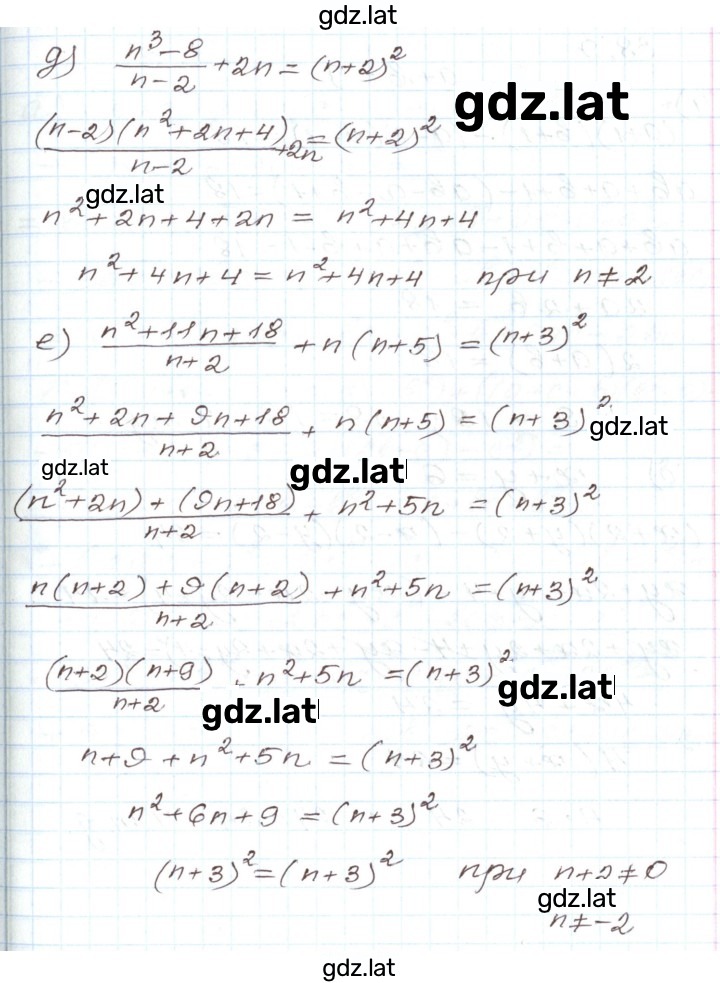 gdz.lat
д) (n³-8)/(n-2) + 2n = (n+2)²
gdz.lat
((n-2)(n²+2n+4))/(n-2) + 2n = (n+2)²
gdz.lat
n²+2n+4+2n = n²+4n+4
n²+4n+4 = n²+4n+4 при n≠2
е) (n²+11n+18)/(n+2) + n(n+5) = (n+3)²
(n²+2n+9n+18)/(n+2) + n(n+5) = (n+3)²
gdz.lat
gdz.lat
gdz.lat
((n²+2n)+(9n+18))/(n+2) + n²+5n = (n+3)²
(n(n+2)+9(n+2))/(n+2) + n²+5n = (n+3)²
((n+2)(n+9))/(n+2) + n²+5n = (n+3)²
gdz.lat
gdz.lat
n+9+n²+5n = (n+3)²
n²+6n+9 = (n+3)²
(n+3)² = (n+3)² при n+2≠0
gdz.lat
n≠-2
gdz.lat